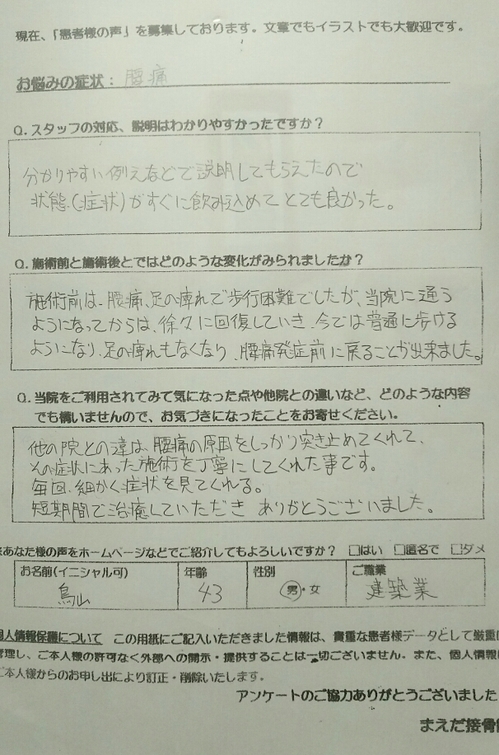 現在、「患者様の声」を募集しております。文章でもイラストでも大歓迎です。
お悩みの症状: 腰痛
Q.スタッフの対応、説明はわかりやすかったですか?
分かりやすい例えなどで説明してもらえたので
状態(症状)がすぐに飲み込めてとても良かった。
Q.施術前と施術後とではどのような変化がみられましたか?
施術前は、腰痛、足の痺れで歩行困難でしたが、当院に通う
ようになってからは、徐々に回復していき、今では普通に歩ける
ようになり、足の痺れもなくなり、腰痛発症前に戻ることが出来ました。
Q.当院をご利用されてみて気になった点や他院との違いなど、どのような内容
でも構いませんので、お気づきになったことをお寄せください。
他の院との違は、腰痛の原因をしっかり突き止めてくれて、
その症状にあった施術を丁寧にしてくれた事です。
毎回、細かく症状を見てくれる。
短期間で治癒していただき ありがとうございました。
あなた様の声をホームページなどでご紹介してもよろしいですか? □はい □匿名で □ダメ
お名前(イニシャル可) 年齢 性別 ご職業
鳥山 43 男・女 建築業
個人情報保護について この用紙にご記入いただきました情報は、貴重な患者様データとして厳重に
管理し、ご本人様の許可なく外部への開示・提供することは一切ございません。また、個人情報は
ご本人様からのお申し出により訂正・削除いたします。
アンケートのご協力ありがとうございました
まえだ接骨